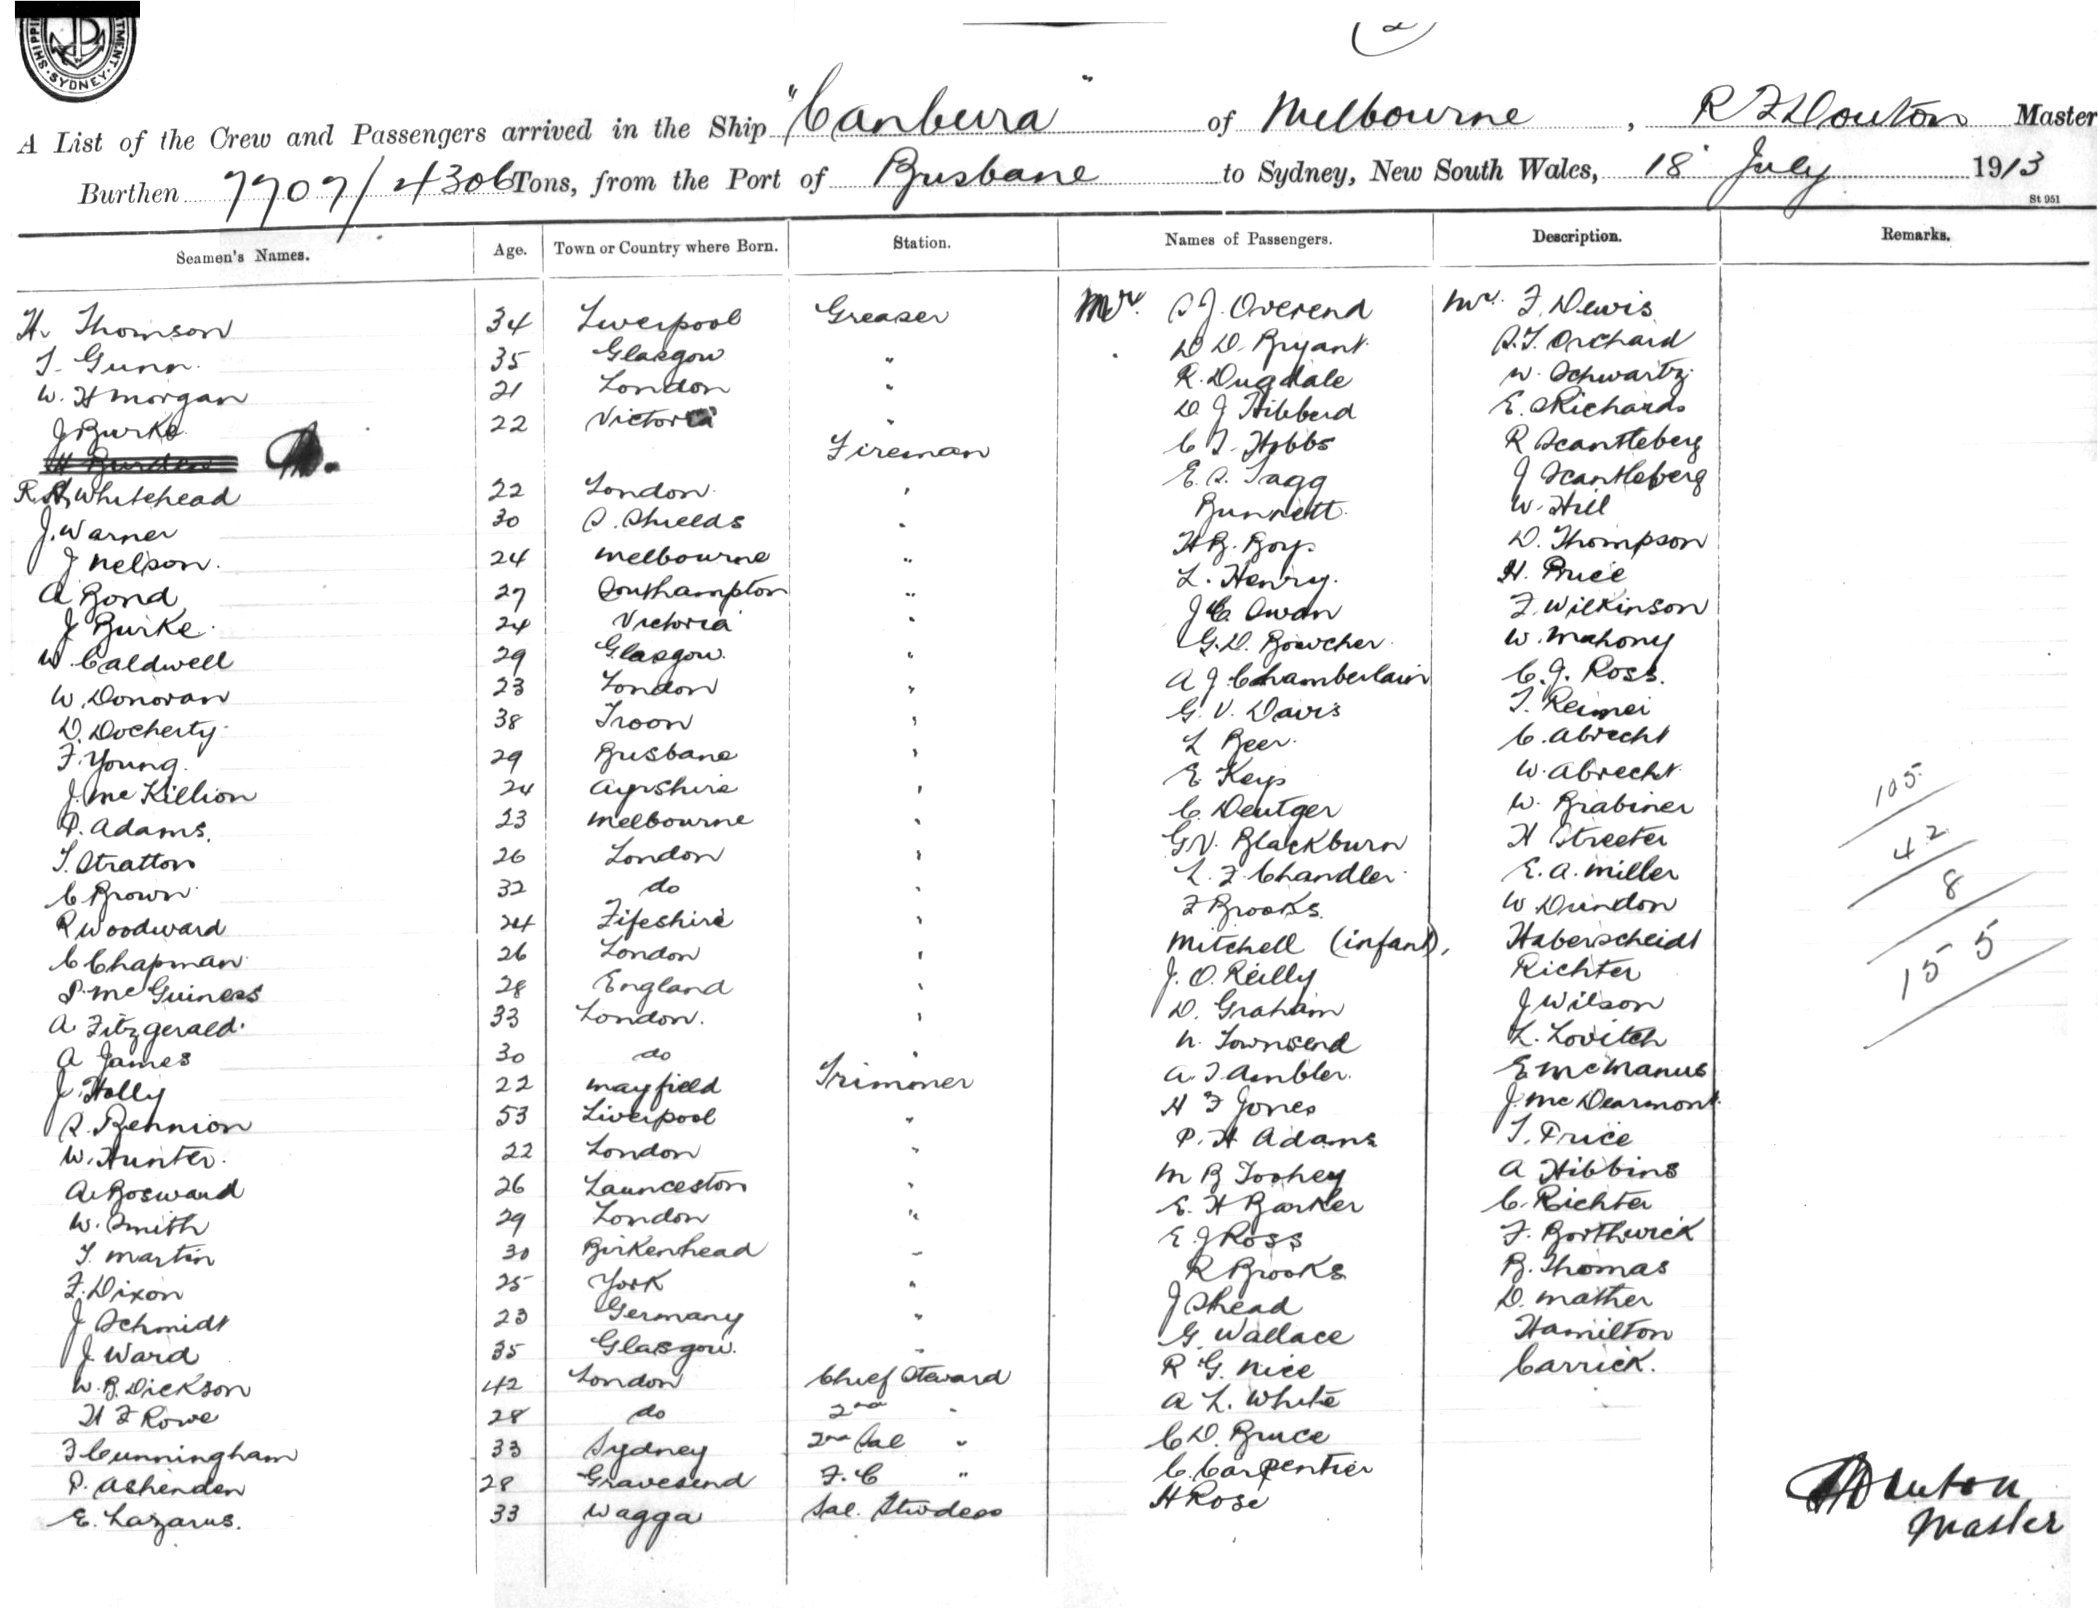 SHIPPING DEPARTMENT SYDNEY
2
A List of the Crew and Passengers arrived in the Ship "Canberra" of Melbourne, R F Douton Master
Burthen 7707/4306 Tons, from the Port of Brisbane to Sydney, New South Wales, 18 July 1913
St 951
Seamen's Names. Age. Town or Country where Born. Station. Names of Passengers. Description. Remarks.
H. Thomson 34 Liverpool Greaser Mr. S J. Overend Mr. F. Dewis
T. Gunn 35 Glasgow " D D. Bryant S.T. Orchard
W. H Morgan 21 London " R. Dugdale W. Schwartz
J Burke 22 Victoria " D J Hibberd E. Richards
H Burden Fireman C T. Hobbs R Scantleberg
R. A. Whitehead 22 London " E. S. Tagg J Scantleberg
J. Warner 30 S. Shields " Bunnett W. Hill
J Nelson 24 Melbourne " H B. Boys D. Thompson
A Bond 27 Southampton " L. Henry H. Price
J Burke 24 Victoria " J C. Swan F. Wilkinson
W. Caldwell 29 Glasgow " G. D. Bowcher W. Mahony
W. Donovan 23 London " A J Chamberlain C. J. Ross
D. Docherty 38 Troon " G. V. Davis T. Reimei
F. Young 29 Brisbane " L Beer C. Abrecht
J. McKillion 24 Ayrshire " E. Keys W. Abrecht
P. Adams 23 Melbourne " C. Deutger W. Brabiner 105
T. Stratton 26 London " G V. Blackburn H Streeter 42
C Brown 32 do " L. F. Chandler E. A. Miller 8
R Woodward 24 Fifeshire " F Brooks W Dundon
C Chapman 26 London " Mitchell (infant), Haberscheidt 155
P. McGuiness 28 England " J. O. Reilly Richter
A Fitzgerald 33 London " D. Graham J Wilson
A James 30 do " N. Townsend L. Lovitch
J. Holly 22 Mayfield Trimmer A. T Ambler E McManus
S. Bennion 53 Liverpool " H F Jones J. McDearmont
W. Hunter 22 London " P. H Adams T. Price
A. Bosward 26 Launceston " M B Toohey A Hibbins
W. Smith 29 London " E. H Barker C. Richter
T. Martin 30 Birkenhead " E. J Ross F. Borthwick
F. Dixon 25 York " R Brooks B. Thomas
J Schmidt 23 Germany " J Shead D. Mather
J Ward 35 Glasgow " G. Wallace Hamilton
W. B. Dickson 42 London Chief Steward R G. Nice Carrick.
H F Rowe 28 do 2nd " A L. White
F Cunningham 33 Sydney 2nd Sal " C D. Bruce
P. Ashenden 28 Gravesend F. C " C. Carpentier
E. Lazarus. 33 Wagga Sal. Stwdess H Rose
Douton
Master